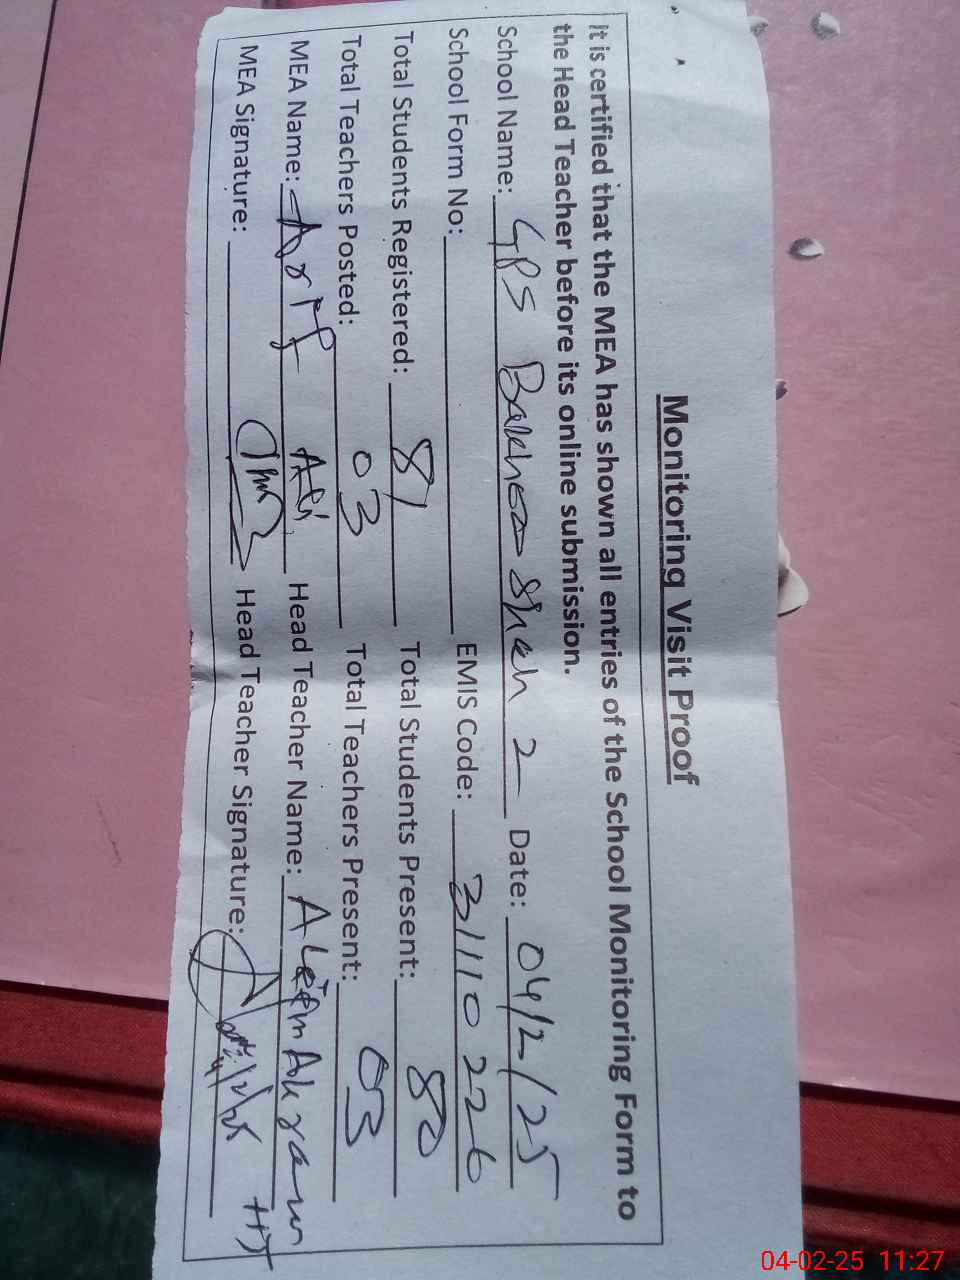 Monitoring Visit Proof
It is certified that the MEA has shown all entries of the School Monitoring Form to
the Head Teacher before its online submission.
School Name: GPS Bakhoo Shah 2 Date: 04/2/25
School Form No: EMIS Code: 31110226
Total Students Registered: 81 Total Students Present: 80
Total Teachers Posted: 03 Total Teachers Present: 03
MEA Name: Arif Ali Head Teacher Name: Aleem Akram HT
MEA Signature: Head Teacher Signature:
04-02-25 11:27